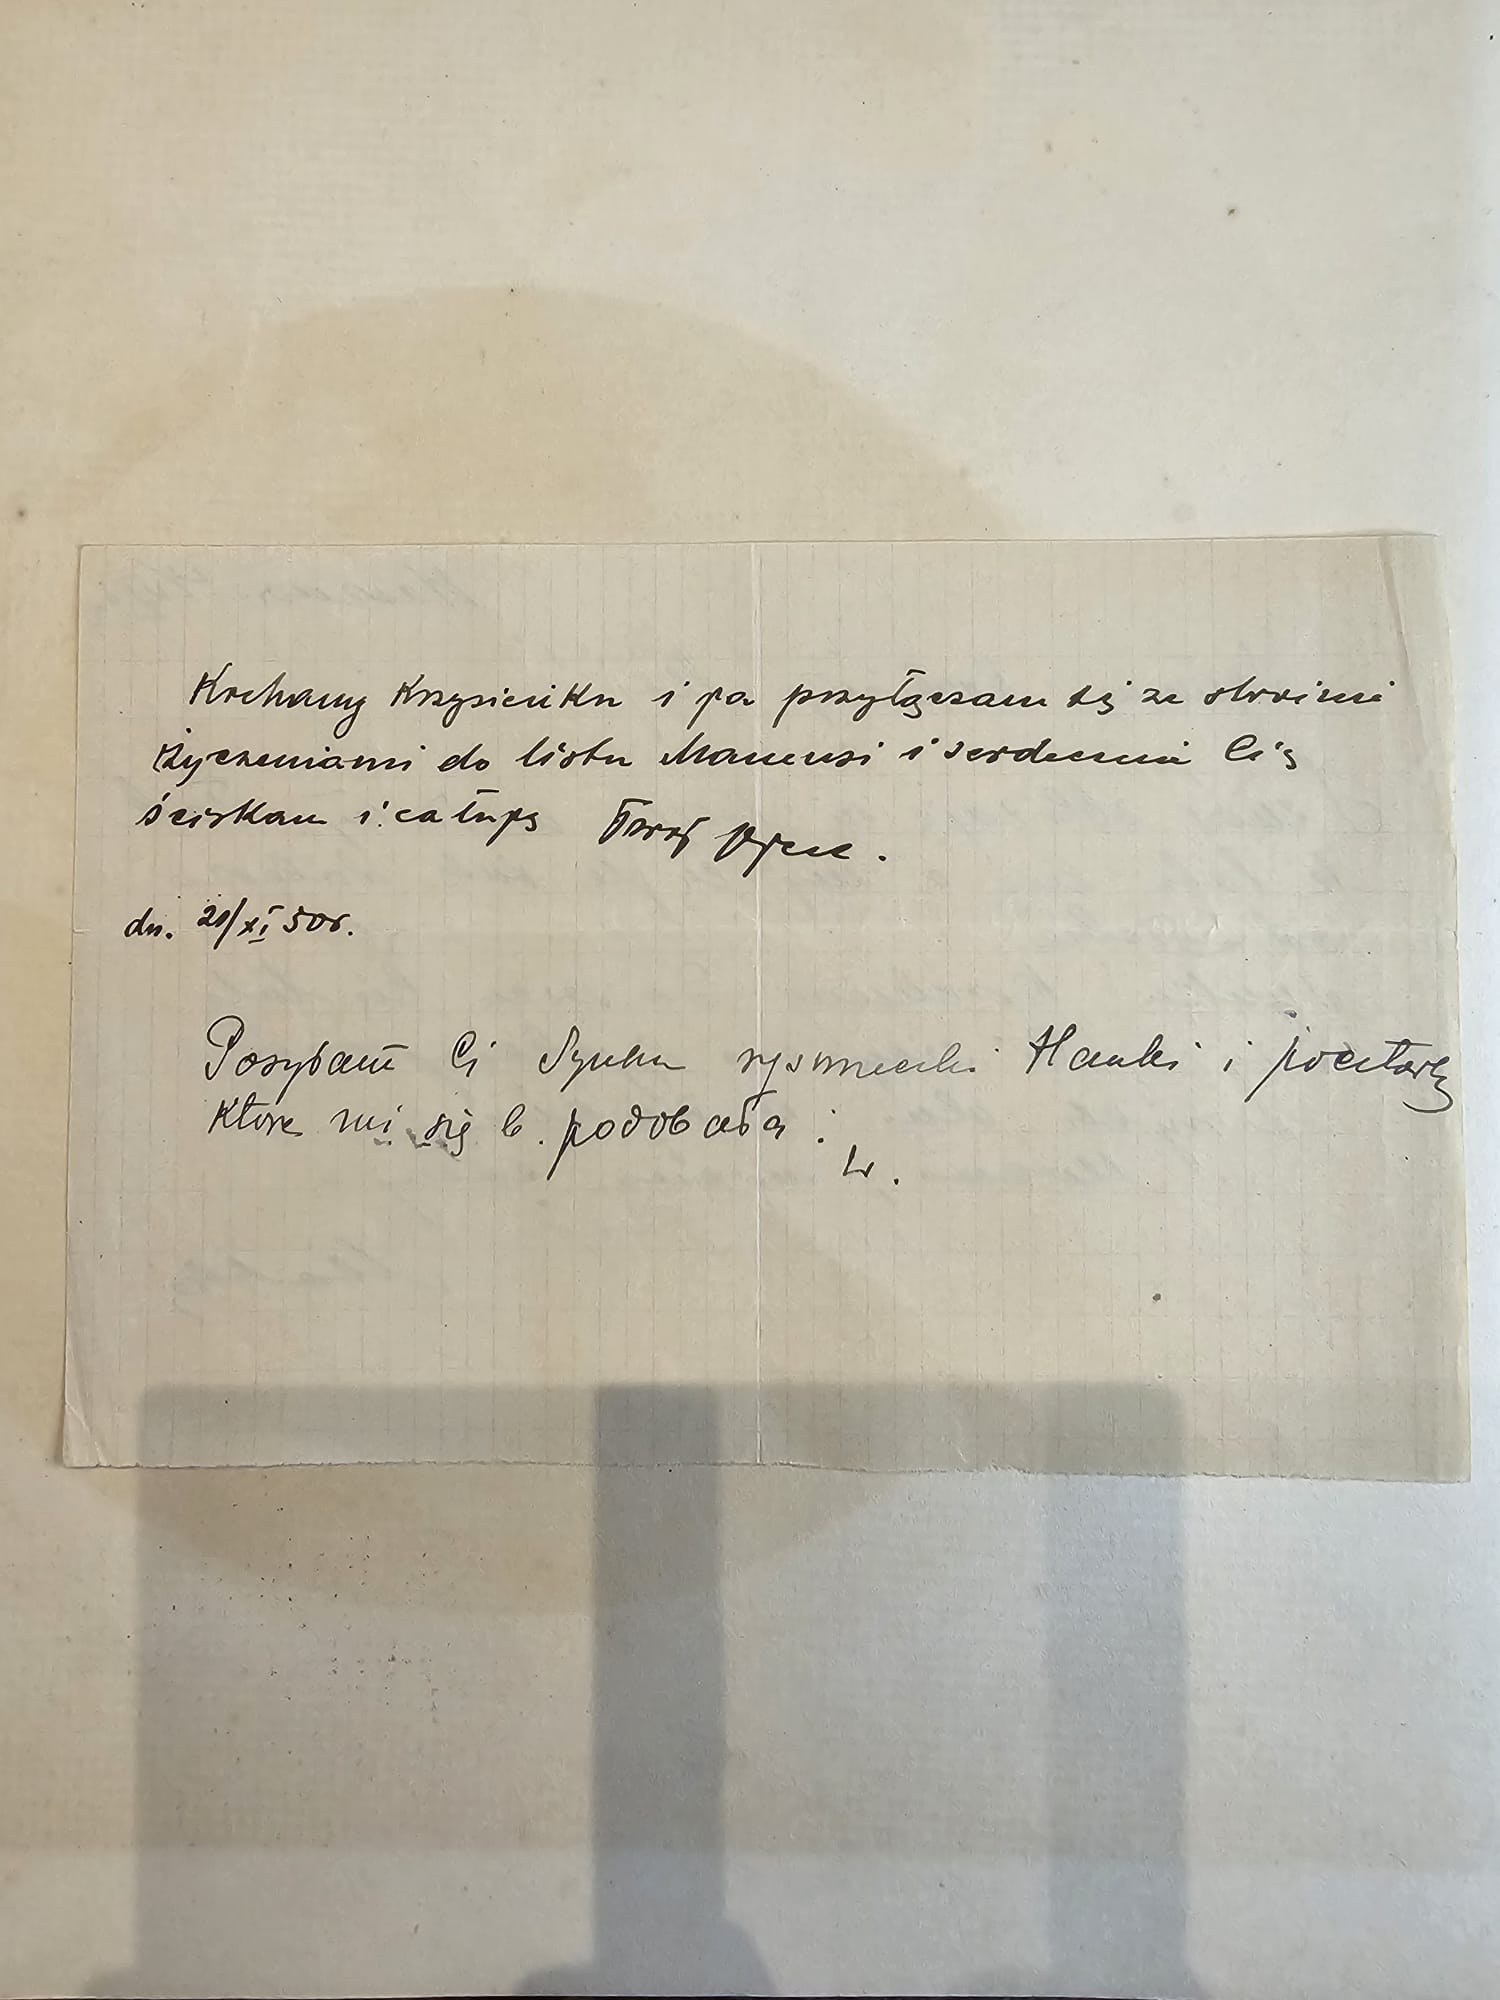 Kochany Krzysieńku i ja przyłączam się ze swoimi
życzeniami do listu Mamusi i serdecznie Cię
ściskam i całuję Twój Ojciec.
dn. 21/XI 50r.
Posyłam Ci Synku rysuneczki Hanki i pocztówkę
która mi się b. podobała.